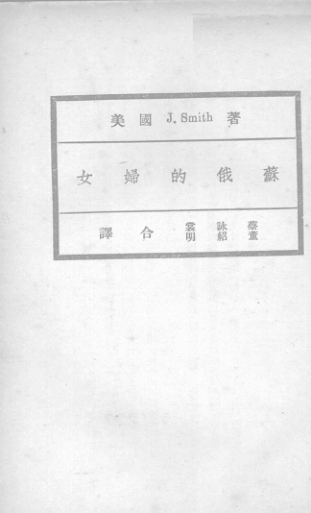 美國 J. Smith 著
蘇俄的婦女
蔡詠裳 董紹明 合譯